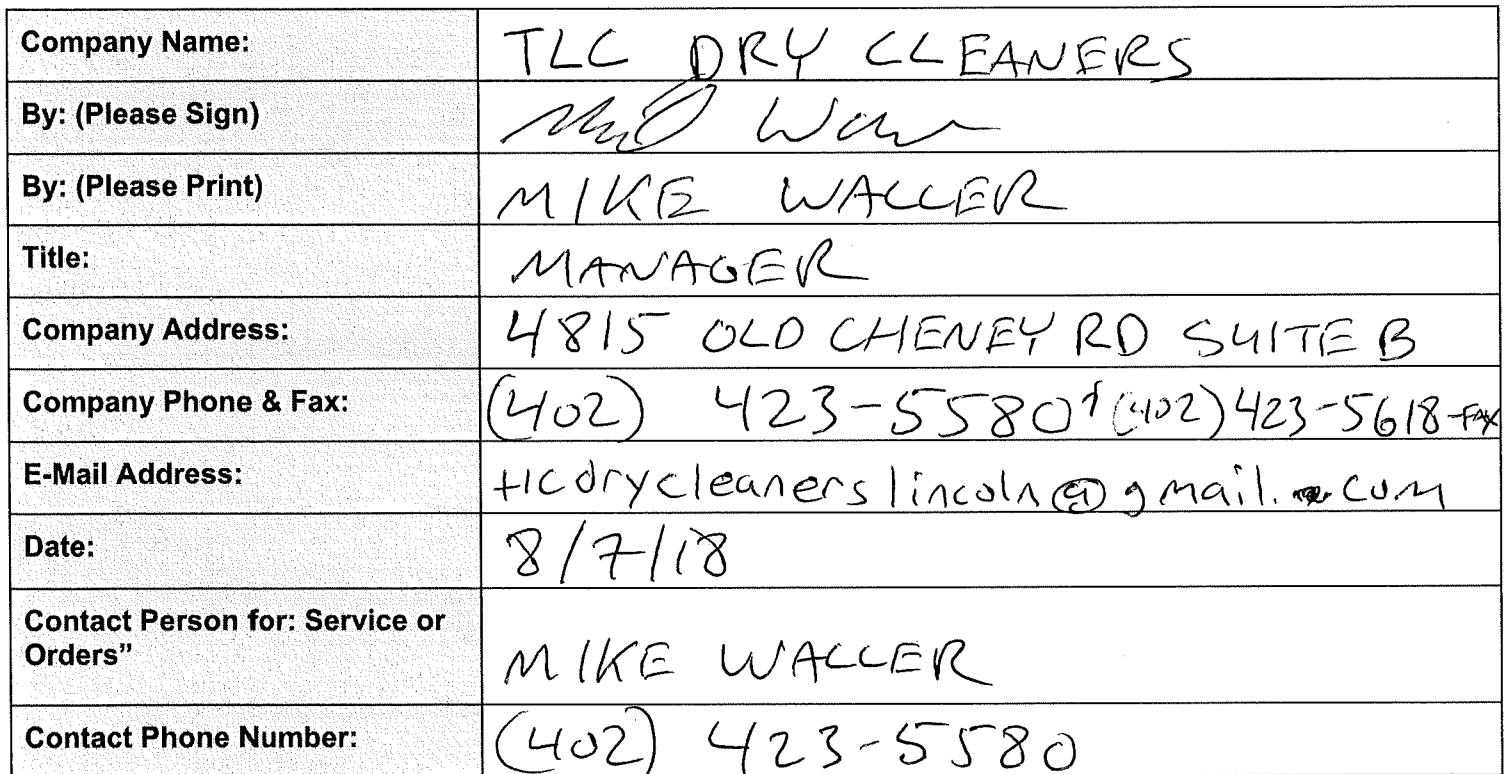 Company Name: TLC DRY CLEANERS
By: (Please Sign)
By: (Please Print) MIKE WALLER
Title: MANAGER
Company Address: 4815 OLD CHENEY RD SUITE B
Company Phone & Fax: (402) 423-5580 (402) 423-5618-FAX
E-Mail Address: tlcdrycleanerslincoln@gmail.com
Date: 8/7/18
Contact Person for: Service or
Orders” MIKE WALLER
Contact Phone Number: (402) 423-5580